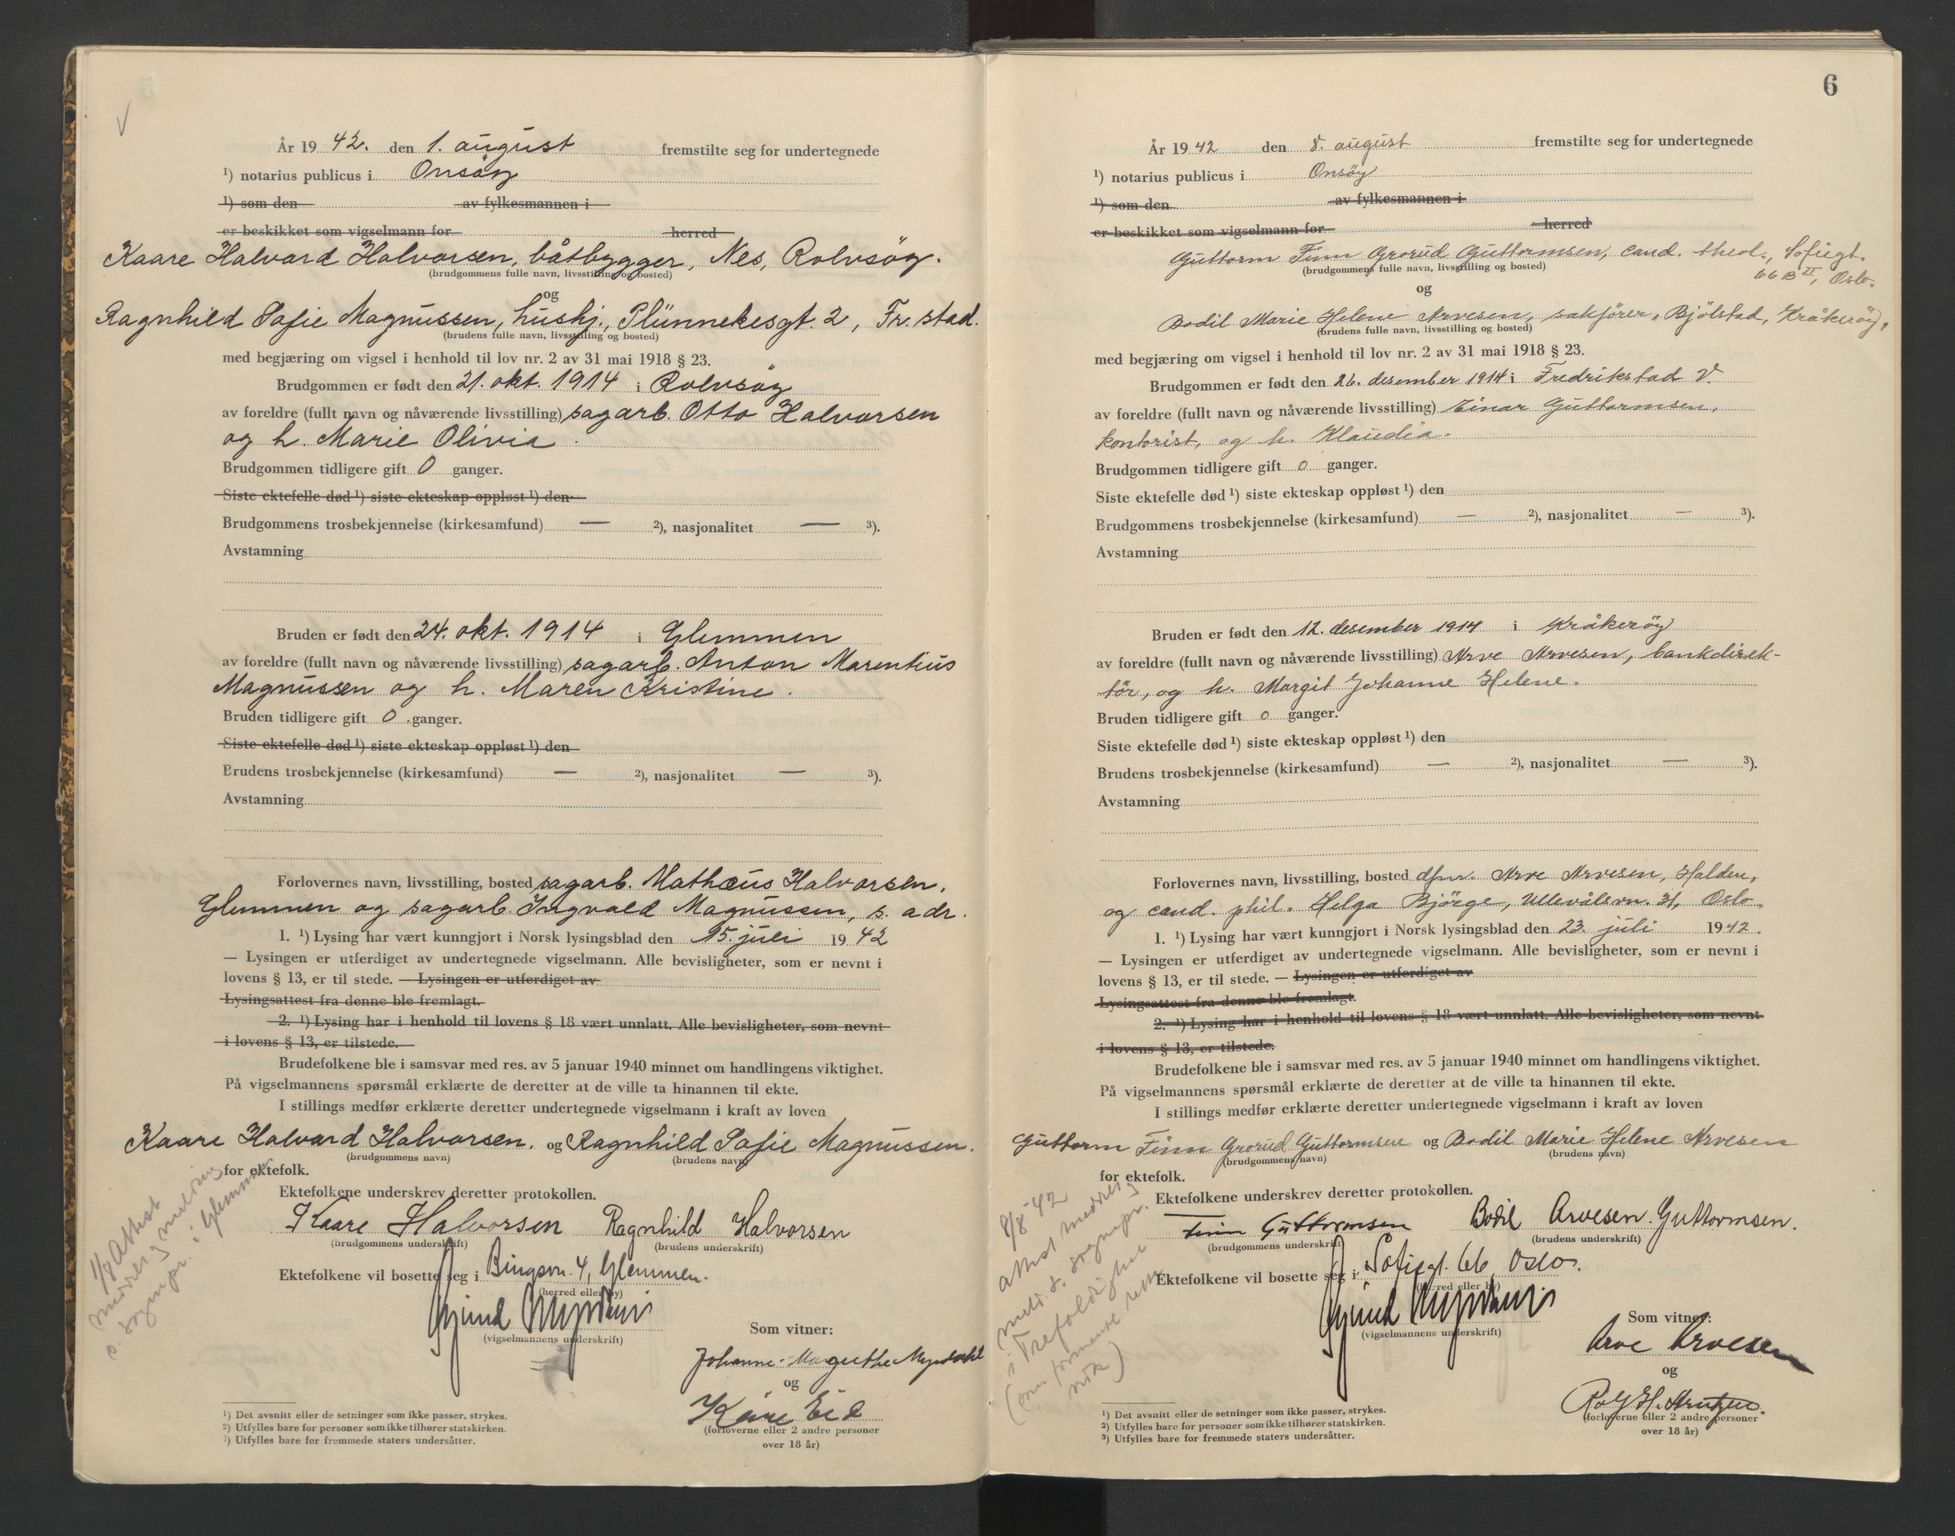 År 19 42. den 1. august fremstilte seg for undertegnede
¹) notarius publicus i Onsöy
¹) som den av fylkesmannen i
er beskikket som vigselmann for herred
Kaare Halvard Halvorsen, båtbygger, Nes, Rolvsöy.
(brudgommens fulle navn, livsstilling og bosted)
og
Ragnhild Sofie Magnussen, hushj., Plünnekesgt. 2, Fr.stad.
(brudens fulle navn, livsstilling og bosted)
med begjæring om vigsel i henhold til lov nr. 2 av 31 mai 1918 § 23.
Brudgommen er født den 21. okt. 1914 i Rolvsöy
av foreldre (fullt navn og nåværende livsstilling) sagarb. Otto Halvorsen
og h. Marie Olivia.
Brudgommen tidligere gift 0 ganger.
Siste ektefelle død ¹) siste ekteskap oppløst ¹) den
Brudgommens trosbekjennelse (kirkesamfund) — ²), nasjonalitet — ³).
Avstamning
Bruden er født den 24. okt. 1914 i Glemmen
av foreldre (fullt navn og nåværende livsstilling) sagarb. Anton Marentius
Magnussen og h. Maren Kristine.
Bruden tidligere gift 0 ganger.
Siste ektefelle død ¹) siste ekteskap oppløst ¹) den
Brudens trosbekjennelse (kirkesamfund) — ²), nasjonalitet — ³).
Avstamning
Forlovernes navn, livsstilling, bosted sagarb. Mathæus Halvorsen,
Glemmen og sagarb. Ingvald Magnussen, s. adr.
1. ¹) Lysing har vært kunngjort i Norsk lysingsblad den 15. juli 19 42
— Lysingen er utferdiget av undertegnede vigselmann. Alle bevisligheter, som er nevnt i
lovens § 13, er til stede. — Lysingen er utferdiget av
Lysingsattest fra denne ble fremlagt.
2. ¹) Lysing har i henhold til lovens § 18 vært unnlatt. Alle bevisligheter, som nevnt
i lovens § 13, er tilstede.
Brudefolkene ble i samsvar med res. av 5 januar 1940 minnet om handlingens viktighet.
På vigselmannens spørsmål erklærte de deretter at de ville ta hinannen til ekte.
I stillings medfør erklærte deretter undertegnede vigselmann i kraft av loven
Kaare Halvard Halvorsen. og Ragnhild Sofie Magnussen.
(brudgommens navn) (brudens navn)
for ektefolk.
Ektefolkene underskrev deretter protokollen.
Kaare Halvorsen Ragnhild Halvorsen
(brudgommens underskrift) (brudens underskrift)
Ektefolkene vil bosette seg i Bingsvn. 4, Glemmen.
(herred eller by)
(vigselmannens underskrift)
Som vitner:
Johanne Magrethe Myrdahl
og
Kåre Eid
(forloverne eller 2 andre personer
over 18 år)
1/8 Attest
meddelt
sogmpr. i Glemmen
¹) Det avsnitt eller de setninger som ikke passer, strykes.
²) Utfylles bare for personer som ikke tilhører statskirken.
³) Utfylles bare for fremmede staters undersåtter.
6
År 19 42 den 8. august fremstilte seg for undertegnede
¹) notarius publicus i Onsöy
¹) som den av fylkesmannen i
er beskikket som vigselmann for herred
Guttorm Finn Grorud Guttormsen, cand. theol., Sofiegt.
66B II, Oslo.
(brudgommens fulle navn, livsstilling og bosted)
og
Bodil Marie Helene Arvesen, sakförer, Bjölstad, Kråkeröy,
(brudens fulle navn, livsstilling og bosted)
med begjæring om vigsel i henhold til lov nr. 2 av 31 mai 1918 § 23.
Brudgommen er født den 26. desember 1914 i Fredrikstad V.
av foreldre (fullt navn og nåværende livsstilling) Einar Guttormsen,
kontorist, og h. Klaudia.
Brudgommen tidligere gift 0 ganger.
Siste ektefelle død ¹) siste ekteskap oppløst ¹) den
Brudgommens trosbekjennelse (kirkesamfund) — ²), nasjonalitet — ³).
Avstamning
Bruden er født den 12. desember 1914 i Kråkeröy
av foreldre (fullt navn og nåværende livsstilling) Arve Arvesen, bankdirek-
tör, og h. Margit Johanne Helene.
Bruden tidligere gift 0 ganger.
Siste ektefelle død ¹) siste ekteskap oppløst ¹) den
Brudens trosbekjennelse (kirkesamfund) — ²), nasjonalitet — ³).
Avstamning
Forlovernes navn, livsstilling, bosted dfm. Arve Arvesen, Halden,
og cand. phil. Helga Bjørge, Ullevålsvn. 31, Oslo.
1. ¹) Lysing har vært kunngjort i Norsk lysingsblad den 23. juli 1942.
— Lysingen er utferdiget av undertegnede vigselmann. Alle bevisligheter, som er nevnt i
lovens § 13, er til stede. — Lysingen er utferdiget av
Lysingsattest fra denne ble fremlagt.
2. ¹) Lysing har i henhold til lovens § 18 vært unnlatt. Alle bevisligheter, som nevnt
i lovens § 13, er tilstede.
Brudefolkene ble i samsvar med res. av 5 januar 1940 minnet om handlingens viktighet.
På vigselmannens spørsmål erklærte de deretter at de ville ta hinannen til ekte.
I stillings medfør erklærte deretter undertegnede vigselmann i kraft av loven
Guttorm Finn Grorud Guttormsen og Bodil Marie Helene Arvesen
(brudgommens navn) (brudens navn)
for ektefolk.
Ektefolkene underskrev deretter protokollen.
Finn Guttormsen Bodil Arvesen Guttormsen.
(brudgommens underskrift) (brudens underskrift)
Ektefolkene vil bosette seg i Sofiegt. 66, Oslo.
(herred eller by)
(vigselmannens underskrift)
Som vitner:
Arve Arvesen
og
Rolf H.
(forloverne eller 2 andre personer
over 18 år)
8/8-42
attest meddelt
sognepr.
i Trefoldighet
¹) Det avsnitt eller de setninger som ikke passer, strykes.
²) Utfylles bare for personer som ikke tilhører statskirken.
³) Utfylles bare for fremmede staters undersåtter.